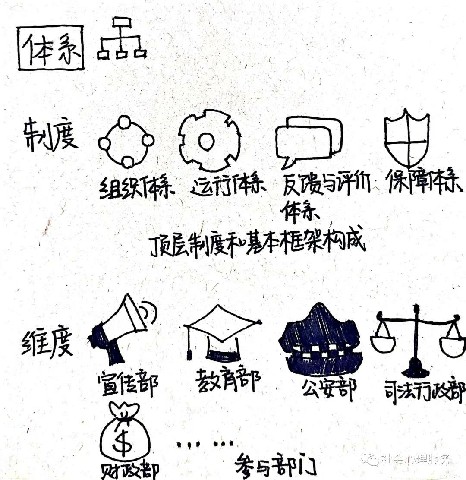 体系
制度
组织体系 运行体系 反馈与评价 保障体系
体系
顶层制度和基本框架构成
维度
宣传部 教育部 公安部 司法行政部
$
财政部 …… 参与部门